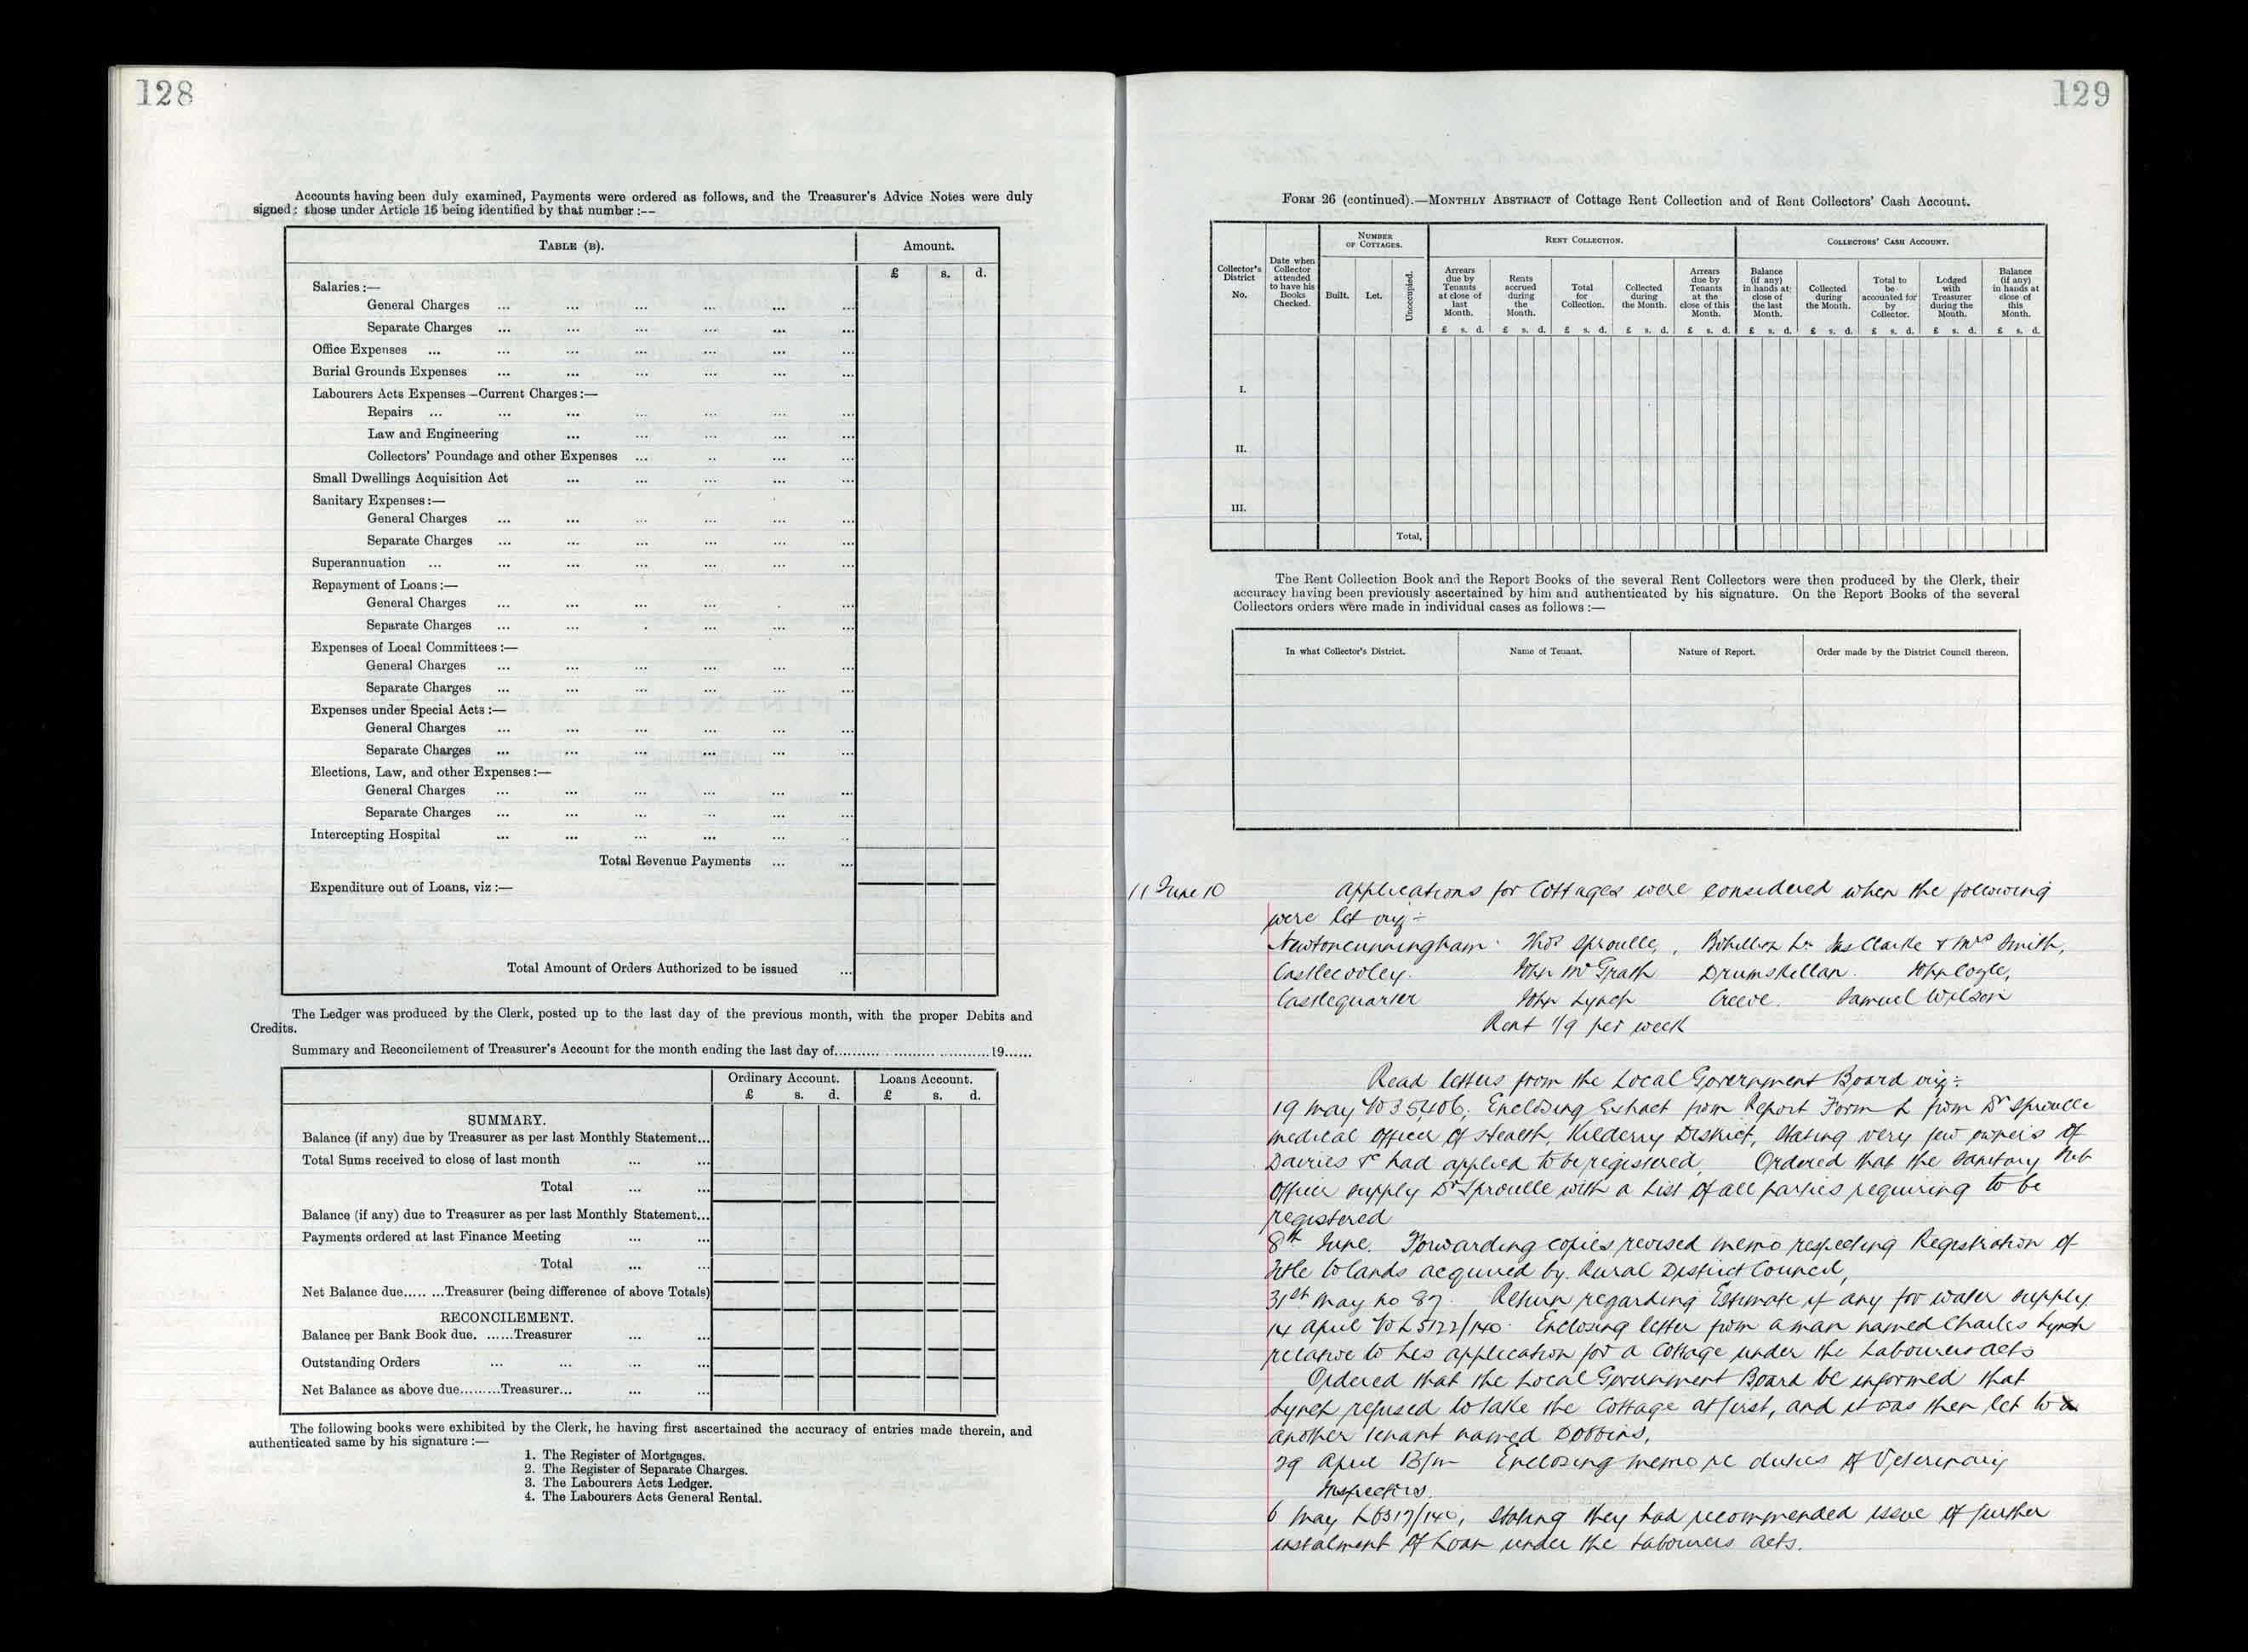 128
Accounts having been duly examined, Payments were ordered as follows, and the Treasurer's Advice Notes were duly
signed; those under Article 16 being identified by that number :--
TABLE (B).
Amount.
£ s. d.
Salaries :—
General Charges ... ... ... ... ... ...
Separate Charges ... ... ... ... ... ...
Office Expenses ... ... ... ... ... ... ...
Burial Grounds Expenses ... ... ... ... ... ...
Labourers Acts Expenses—Current Charges :—
Repairs ... ... ... ... ... ... ...
Law and Engineering ... ... ... ... ...
Collectors' Poundage and other Expenses ... .. ... ...
Small Dwellings Acquisition Act ... ... ... ... ...
Sanitary Expenses :—
General Charges ... ... ... ... ... ...
Separate Charges ... ... ... ... ... ...
Superannuation ... ... ... ... ... ... ...
Repayment of Loans :—
General Charges ... ... ... ... . ...
Separate Charges ... ... . ... ... ...
Expenses of Local Committees :—
General Charges ... ... ... ... ... ...
Separate Charges ... ... ... ... ... ...
Expenses under Special Acts :—
General Charges ... ... ... ... ... ...
Separate Charges ... ... ... ... ... ...
Elections, Law, and other Expenses :—
General Charges ... ... ... ... ... ...
Separate Charges ... ... ... ... ... ...
Intercepting Hospital ... ... ... ... ... ..
Total Revenue Payments ... ...
Expenditure out of Loans, viz :—
Total Amount of Orders Authorized to be issued ...
The Ledger was produced by the Clerk, posted up to the last day of the previous month, with the proper Debits and
Credits.
Summary and Reconcilement of Treasurer's Account for the month ending the last day of..............................19......
Ordinary Account. Loans Account.
£ s. d. £ s. d.
SUMMARY.
Balance (if any) due by Treasurer as per last Monthly Statement...
Total Sums received to close of last month ... ...
Total ... ...
Balance (if any) due to Treasurer as per last Monthly Statement...
Payments ordered at last Finance Meeting ... ...
Total ... ...
Net Balance due..... ...Treasurer (being difference of above Totals)
RECONCILEMENT.
Balance per Bank Book due. ......Treasurer ... ...
Outstanding Orders ... ... ... ...
Net Balance as above due.........Treasurer... ... ...
The following books were exhibited by the Clerk, he having first ascertained the accuracy of entries made therein, and
authenticated same by his signature :—
1. The Register of Mortgages.
2. The Register of Separate Charges.
3. The Labourers Acts Ledger.
4. The Labourers Acts General Rental.
129
FORM 26 (continued).—MONTHLY ABSTRACT of Cottage Rent Collection and of Rent Collectors' Cash Account.
Collector's District No.
Date when Collector attended to have his Books Checked.
NUMBER OF COTTAGES.
Built. Let. Unoccupied.
RENT COLLECTION.
Arrears due by Tenants at close of last Month. £ s. d.
Rents accrued during the Month. £ s. d.
Total for Collection. £ s. d.
Collected during the Month. £ s. d.
Arrears due by Tenants at the close of this Month. £ s. d.
COLLECTORS' CASH ACCOUNT.
Balance (if any) in hands at close of the last Month. £ s. d.
Collected during the Month. £ s. d.
Total to be accounted for by Collector. £ s. d.
Lodged with Treasurer during the Month. £ s. d.
Balance (if any) in hands at close of this Month. £ s. d.
I.
II.
III.
Total,
The Rent Collection Book and the Report Books of the several Rent Collectors were then produced by the Clerk, their
accuracy having been previously ascertained by him and authenticated by his signature. On the Report Books of the several
Collectors orders were made in individual cases as follows :—
In what Collector's District. Name of Tenant. Nature of Report. Order made by the District Council thereon.
11 June 10 Applications for Cottages were considered when the following
were let viz:-
Newtoncunningham Thos Sproulle, Jas Clarke & Mrs Smith,
Castlecooley. John McGrath Drumskellan. John Coyle,
Castlequarter John Lynch Creeve. Samuel Wilson
Rent 1/9 per week
Read letters from the Local Government Board viz:-
19 May No 35,406, Enclosing Extract from Report Form L from Dr Sproulle
Medical Officer of Health, Kilderry District, stating very few owners of
Dairies &c had applied to be registered, Ordered that the Sanitary Sub
Officer supply Dr Sproulle with a list of all parties requiring to be
registered
8th June. Forwarding copies revised memo respecting Registration of
Title to lands acquired by Rural District Council,
31st May No 87. Return regarding Estimate if any for water supply
14 April No L5122/140. Enclosing letter from a man named Charles Lynch
relative to his application for a Cottage under the Labourers Acts
Ordered that the Local Government Board be informed that
Lynch refused to take the Cottage at first, and it was then let to
another tenant named Dobbins,
29 April Enclosing memo re duties of Veterinary
Inspectors.
6 May L6317/140, stating they had recommended issue of further
instalment of Loan under the Labourers Acts.